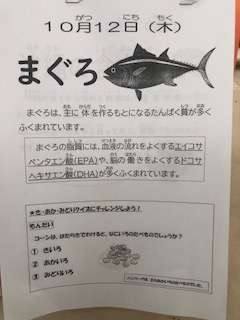 10月12日（木）
まぐろ
まぐろは、主に体を作るもとになるたんぱく質が多く
ふくまれています。
まぐろの脂質には、血液の流れをよくするエイコサ
ペンタエン酸(EPA)や、脳の働きをよくするドコサ
ヘキサエン酸(DHA)が多くふくまれています。
★き・あか・みどりクイズにチャレンジしよう！
もんだい
コーンは、はたらきでわけると、なにいろのたべものでしょうか？
① きいろ
② あかいろ
③ みどりいろ